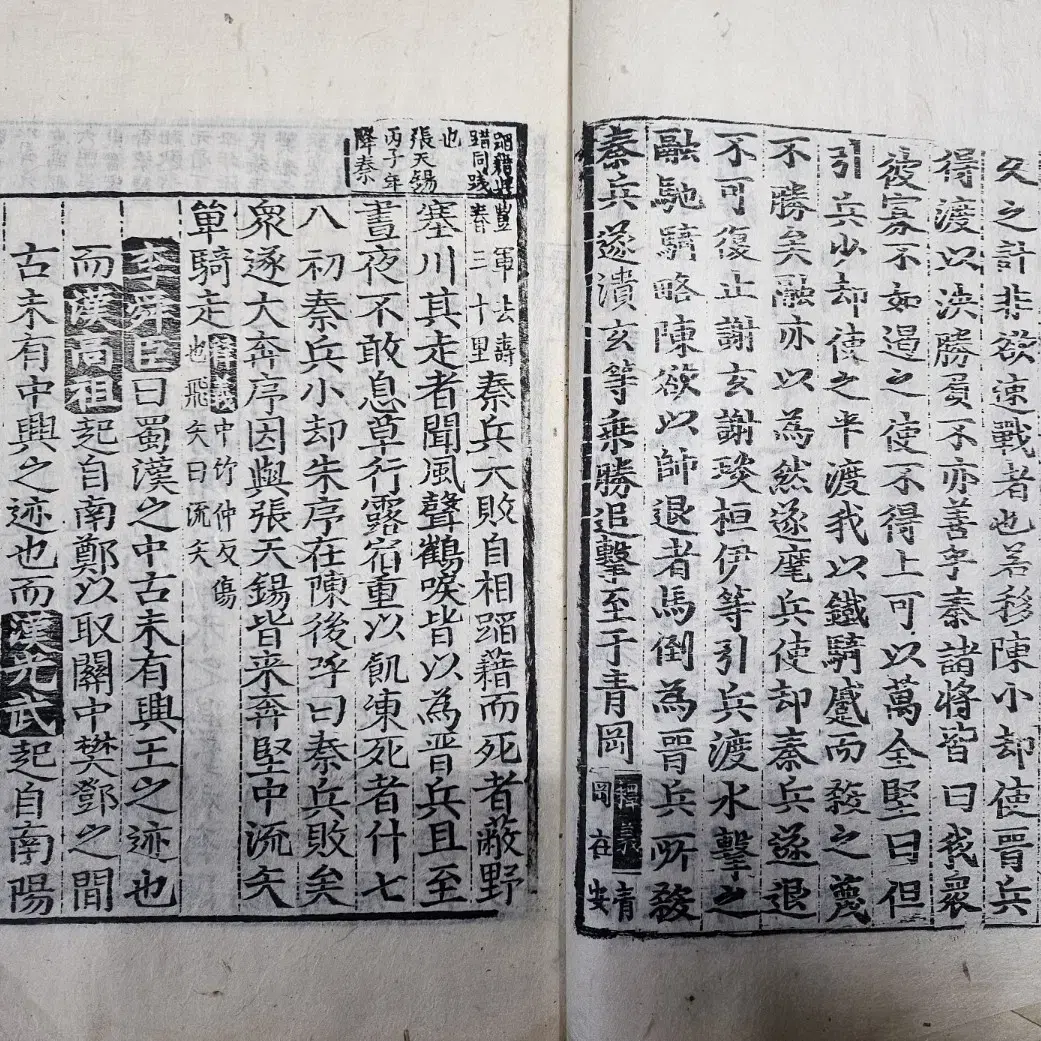 久之計非欲速戰者也若移陳小却使晋兵
得渡以决勝負不亦善乎秦諸將皆曰我衆
彼寡不如遏之使不得上可以萬全堅曰但
引兵少却使之半渡我以鐵騎蹙而殺之蔑
不勝矣融亦以為然遂麾兵使却秦兵遂退
不可復止謝玄謝琰桓伊等引兵渡水擊之
融馳騎略陳欲以帥退者馬倒為晋兵所殺
秦兵遂潰玄等乗勝追擊至于青岡
青
岡在安
蹈藉上
踖同踐
也
張天錫
丙子年
降秦
豊軍去壽
春三十里
秦兵大敗自相蹈藉而死者蔽野
塞川其走者聞風聲鶴唳皆以為晋兵且至
晝夜不敢息草行露宿重以飢凍死者什七
八初秦兵小却朱序在陳後呼曰秦兵敗矣
衆遂大奔序因與張天錫皆来奔堅中流矢
單騎走
釋義中竹仲反傷
也飛矢曰流矢
李舜臣曰蜀漢之中古未有興王之迹也
而漢高祖起自南鄭以取關中樊鄧之間
古未有中興之迹也而漢光武起自南陽